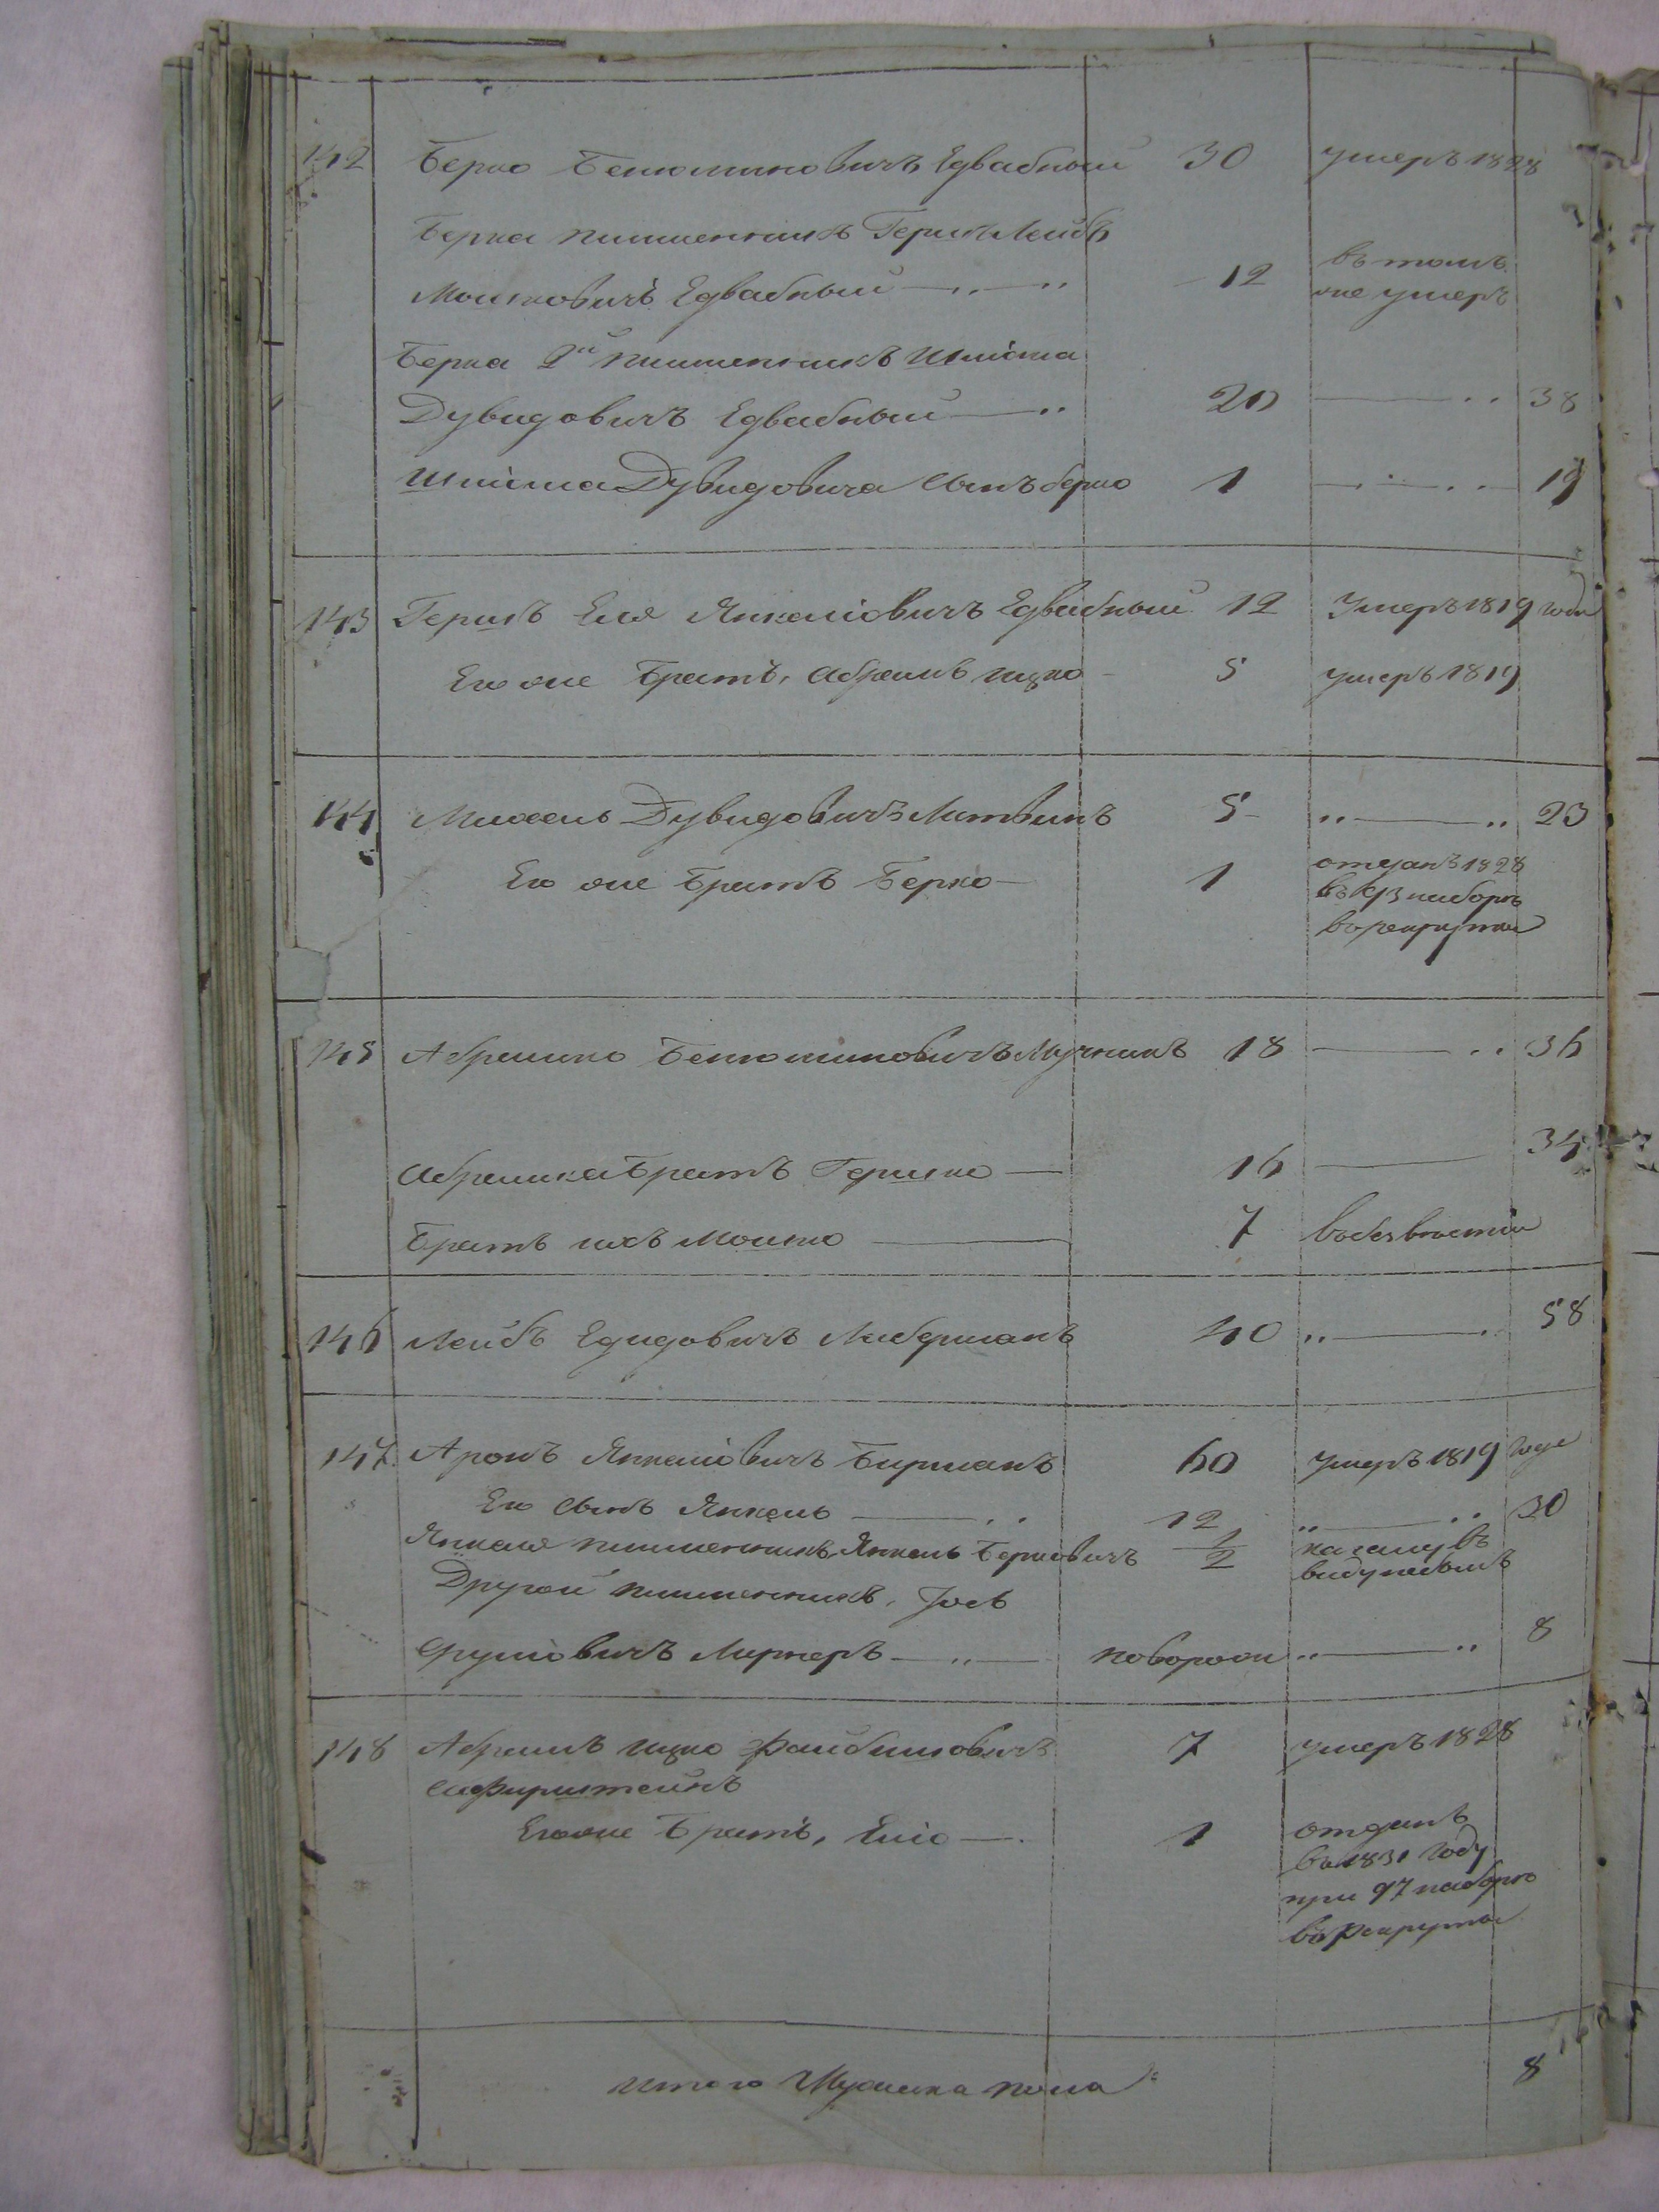 142 Берко Бенюминовичъ Едвабный 30 умеръ 1828
Берка племенникъ Гершъ Лейбъ
Мошковичъ Едвабный 12 въ томъ
же умеръ
Берка 2й племенникъ Шліома
Дувидовичъ Едвабный 20 38
Шліома Дувидовича сынъ берко 1 19
143 Гершъ Еля Янкеліовичъ Едвабный 12 Умеръ 1819 года
Его же Братъ, Абрамъ ицко 5 умеръ 1819
144 Михель Дувидовичъ Литвинъ 5 23
Его же Братъ Берко 1 отданъ 1828
въ наборъ
в рекруты
145 Абрамко Бенюминовичъ Мучникъ 18 36
Абрамка братъ Гершко 16 34
Братъ ихъ Мошко 7 в безвестіи
146 Лейбъ Едидовичъ Либерманъ 40 58
147 Аронъ Янкеліовичъ Бирманъ 60 умеръ 1819 года
Его сынъ Янкель 12 30
Янкеля племенникъ, Янкель Берковичъ 1/2
Другой племенникъ, Іосъ
Сруліовичъ Лирнеръ новорож 8
148 Абрамъ ицко Файбишовичъ 7 умеръ 1828
Сафирштейнъ
Его же Братъ, Еліо 1 отданъ
в 1831 году
при 97 наборе
в рекруты
итого Мужеска пола 8